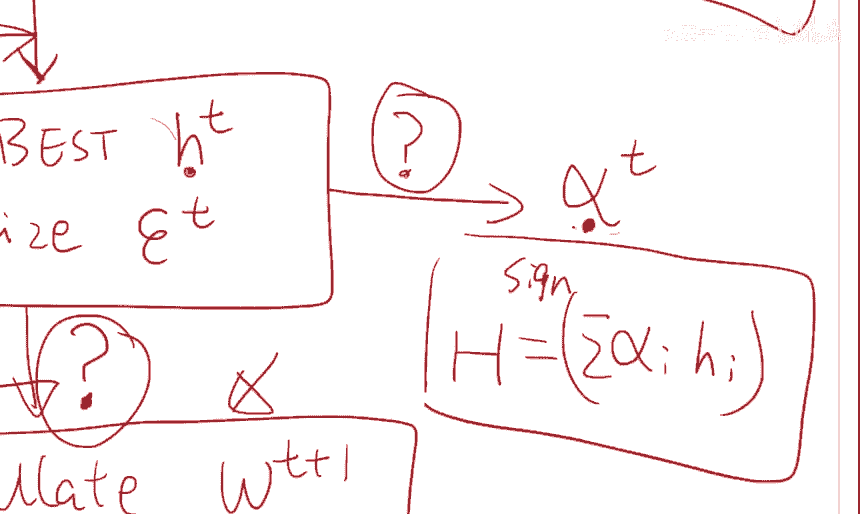 BEST h^t
?
ize ε^t
α^t
sign
H = (Σαᵢ hᵢ)
?
α
ulate w^{t+1}